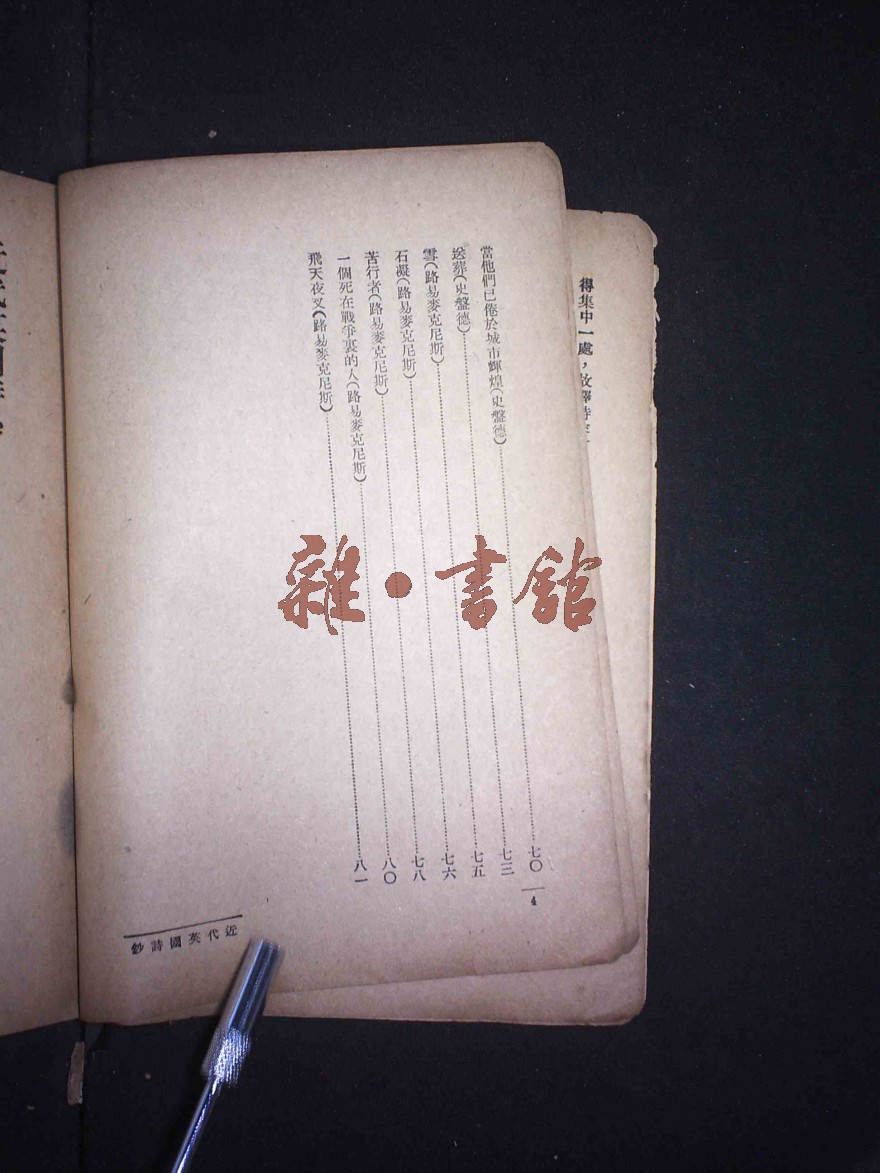 當他們已倦於城市輝煌(史盤德)……七〇
送葬(史盤德)……七三
雪(路易麥克尼斯)……七五
石凝(路易麥克尼斯)……七六
苦行者(路易麥克尼斯)……七八
一個死在戰爭裏的人(路易麥克尼斯)……八〇
飛天夜叉(路易麥克尼斯)……八一
4
近代英國詩鈔
得集中一處，故譯詩
雜·書館